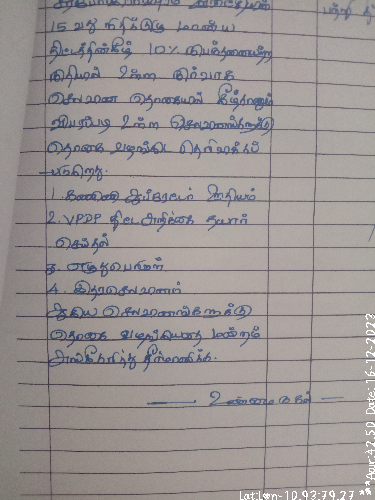 15 வது நிதிக்குழு மானிய
திட்டத்தின்கீழ் 10%
நிதியில் உள்ள நிர்வாக
செலவின தொகையில் கீழ்காணும்
விபரப்படி உள்ள செலவினங்களுக்கு
தொகை வழங்கிட தெரிவிக்கப்
படுகிறது.
1. கணினி ஆப்ரேட்டர் ஊதியம்
2. VPDP திட்ட அறிக்கை தயார்
செய்தல்
3. எழுதுபொருள்
4. இதரசெலவினம்
ஆகிய செலவினங்களுக்கு
தொகை வழங்கியதை மன்றம்
அங்கீகரித்து தீர்மானிக்க.
உண்மை நகல்
Lat:Lon-10.93:79.27 ***Acur:42.50 Date: 16-12-2023